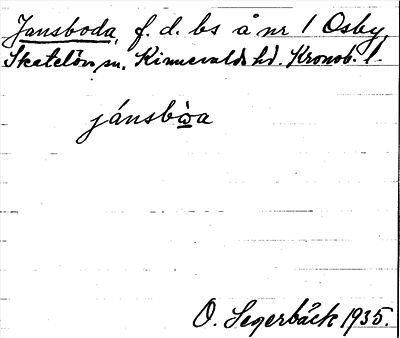 Jansboda, f. d. bs å nr 1 Osby,
Skatelöv sn. Kinnevalds hd. Kronob. l.
jánsbòa
O. Segerbäck 1935.